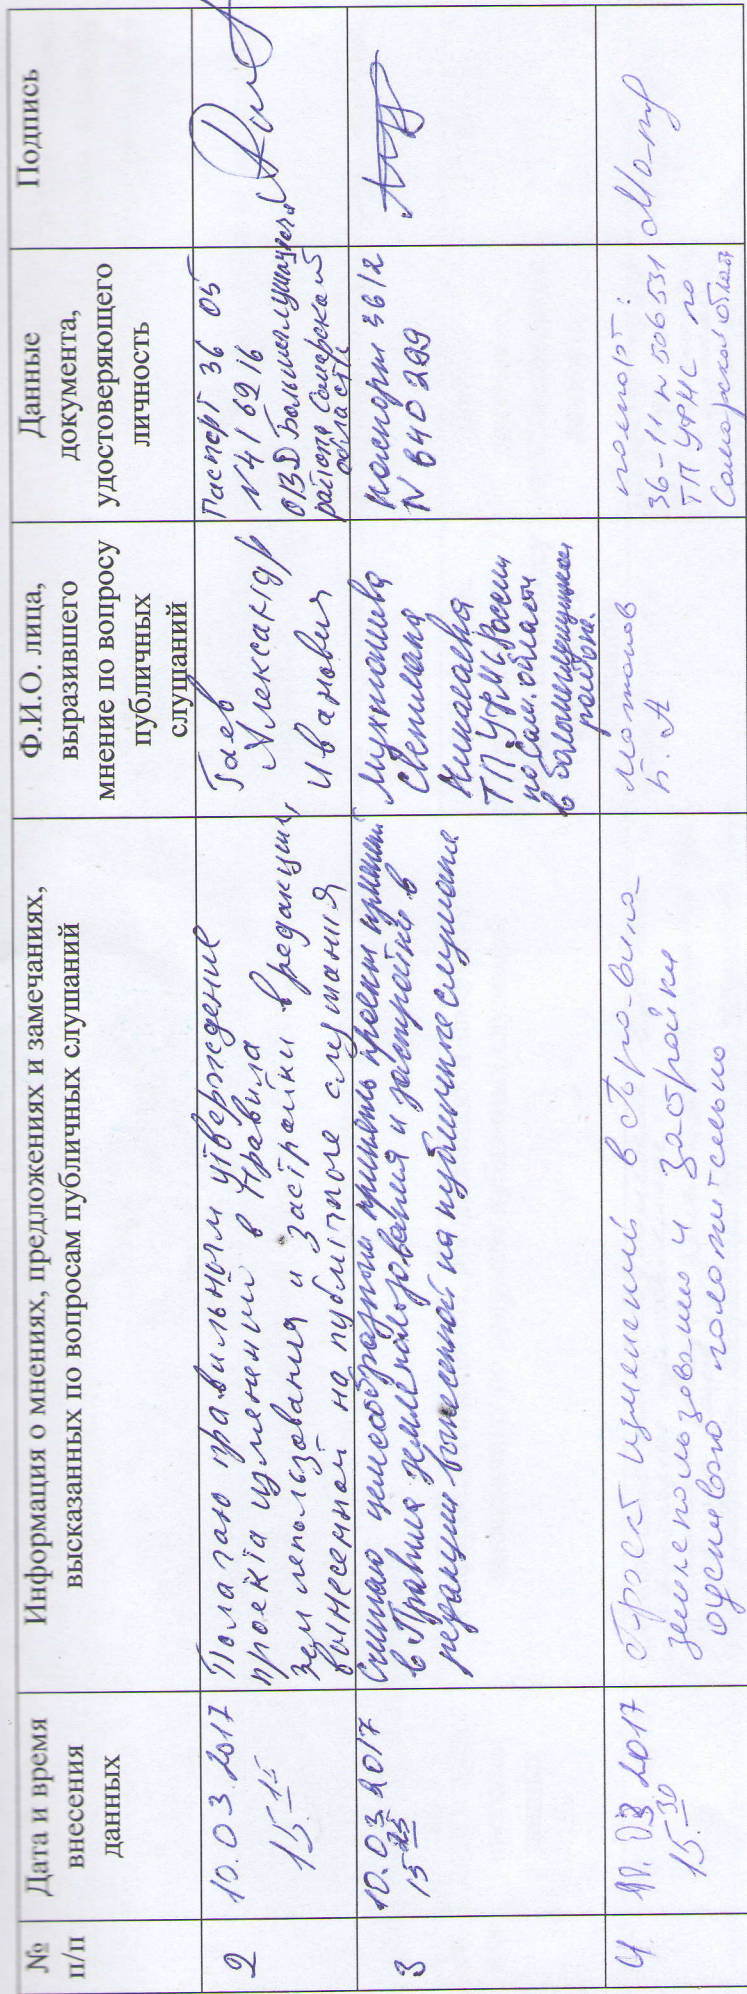 №
п/п
Дата и время
внесения
данных
Информация о мнениях, предложениях и замечаниях,
высказанных по вопросам публичных слушаний
Ф.И.О. лица,
выразившего
мнение по вопросу
публичных
слушаний
Данные
документа,
удостоверяющего
личность
Подпись
2
10.03.2017
15.15
Полагаю правильным утверждение
проекта изменений в Правила
землепользования и застройки в редакции,
вынесенной на публичные слушания
Гаев
Александр
Иванович
Паспорт 36 05
№416916
ОВД Большеглушицкого
района Самарской
области
3
10.03.2017
15 25
Считаю целесообразным принять проект
в Правила землепользования и застройки в
редакции вынесенной на публичные слушания
Светлана
Николаевна
ТП УФМС России
по Сам. области
в Большеглушицком
районе.
паспорт 3612
N 640299
4.
03 2017
15.30
Проект изменений в Правила
землепользования и застройки
оцениваю положительно
паспорт:
36-11 № 506531
ТП УФМС по
Самарской области